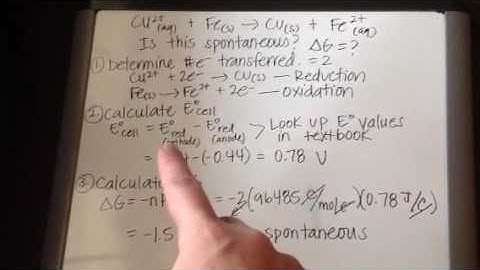 Cu²⁺(aq) + Fe(s) → Cu(s) + Fe²⁺(aq)
Is this spontaneous? ΔG = ?
① Determine # e⁻ transferred. = 2
Cu²⁺ + 2e⁻ → Cu(s) — Reduction
Fe(s) → Fe²⁺ + 2e⁻ — oxidation
② Calculate E°cell
E°cell = E°red (cathode) − E°red (anode) > Look up E° values in textbook
= − (−0.44) = 0.78 V
③ Calculate
ΔG = −n = −2(96485 C/mole)(0.78 J/C)
= −1.5 spontaneous